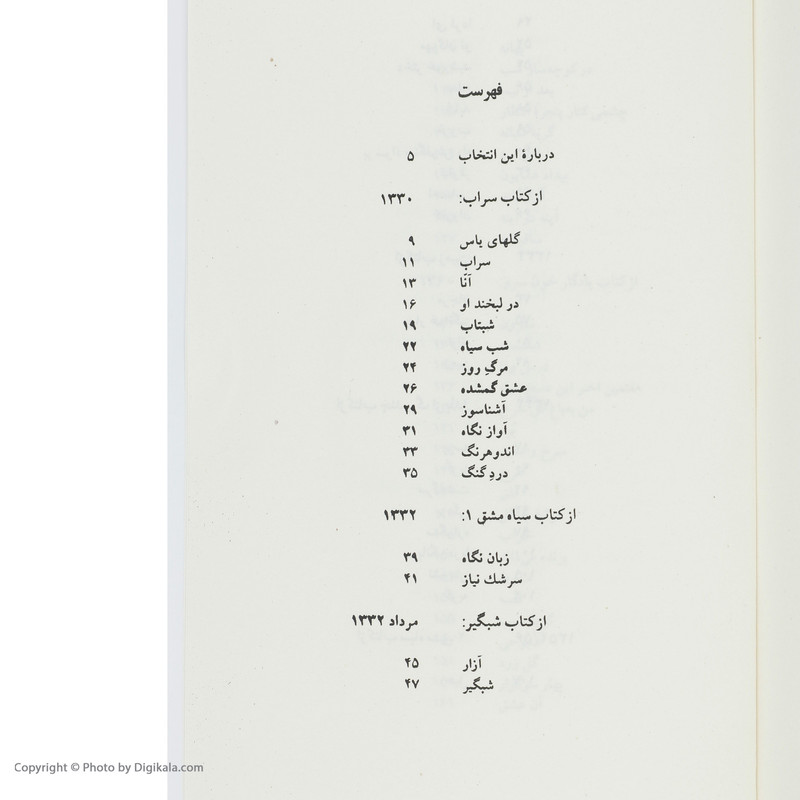 فهرست
دربارهٔ این انتخاب ۵
از کتاب سراب: ۱۳۳۰
گلهای یاس ۹
سراب ۱۱
آنّا ۱۳
در لبخند او ۱۶
شبتاب ۱۹
شب سیاه ۲۲
مرگِ روز ۲۴
عشق گمشده ۲۶
آشناسوز ۲۹
آواز نگاه ۳۱
اندوهرنگ ۳۳
دردِ گنگ ۳۵
از کتاب سیاه مشق ۱: ۱۳۳۲
زبان نگاه ۳۹
سرشك نیاز ۴۱
از کتاب شبگیر: مرداد ۱۳۳۲
آزار ۴۵
شبگیر ۴۷
Copyright © Photo by Digikala.com